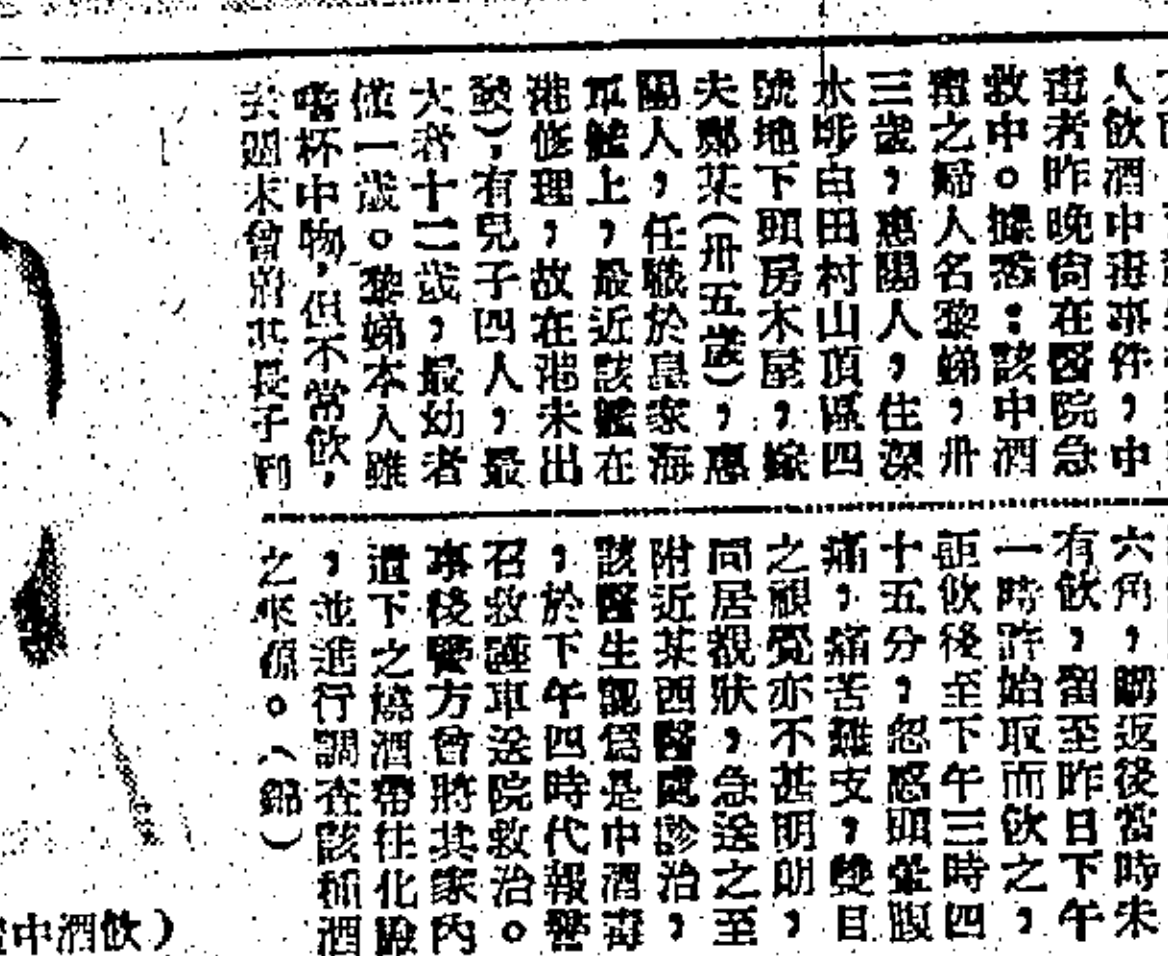 人飲酒中毒事件，中
毒者昨晚尙在醫院急
救中。據悉：該中酒
毒之婦人名黎娣，卅
三歲，惠陽人，住深
水埗白田村山頂區四
號地下頭房木屋，嫁
夫鄭某（卅五歲），惠
陽人，任職於皇家海
軍艦上，最近該艦在
港修理，故在港未出
發），有兒子四人，最
大者十二歲，最幼者
僅一歲。黎娣本人雖
嗜杯中物，但不常飲，
去週末曾將其長子到
六角，購返後當時未
有飲，留至昨日下午
一時許始取而飲之，
詎飲後至下午三時四
十五分，忽感頭暈腹
痛，痛苦難支，雙目
之視覺亦不甚明朗，
同居覩狀，急送之至
附近某西醫處診治，
該醫生認爲是中酒毒
，於下午四時代報警
召救護車送院救治。
事後警方曾將其家內
遺下之燒酒帶往化驗
，並進行調査該種酒
之來源。（錦）
中酒飲）